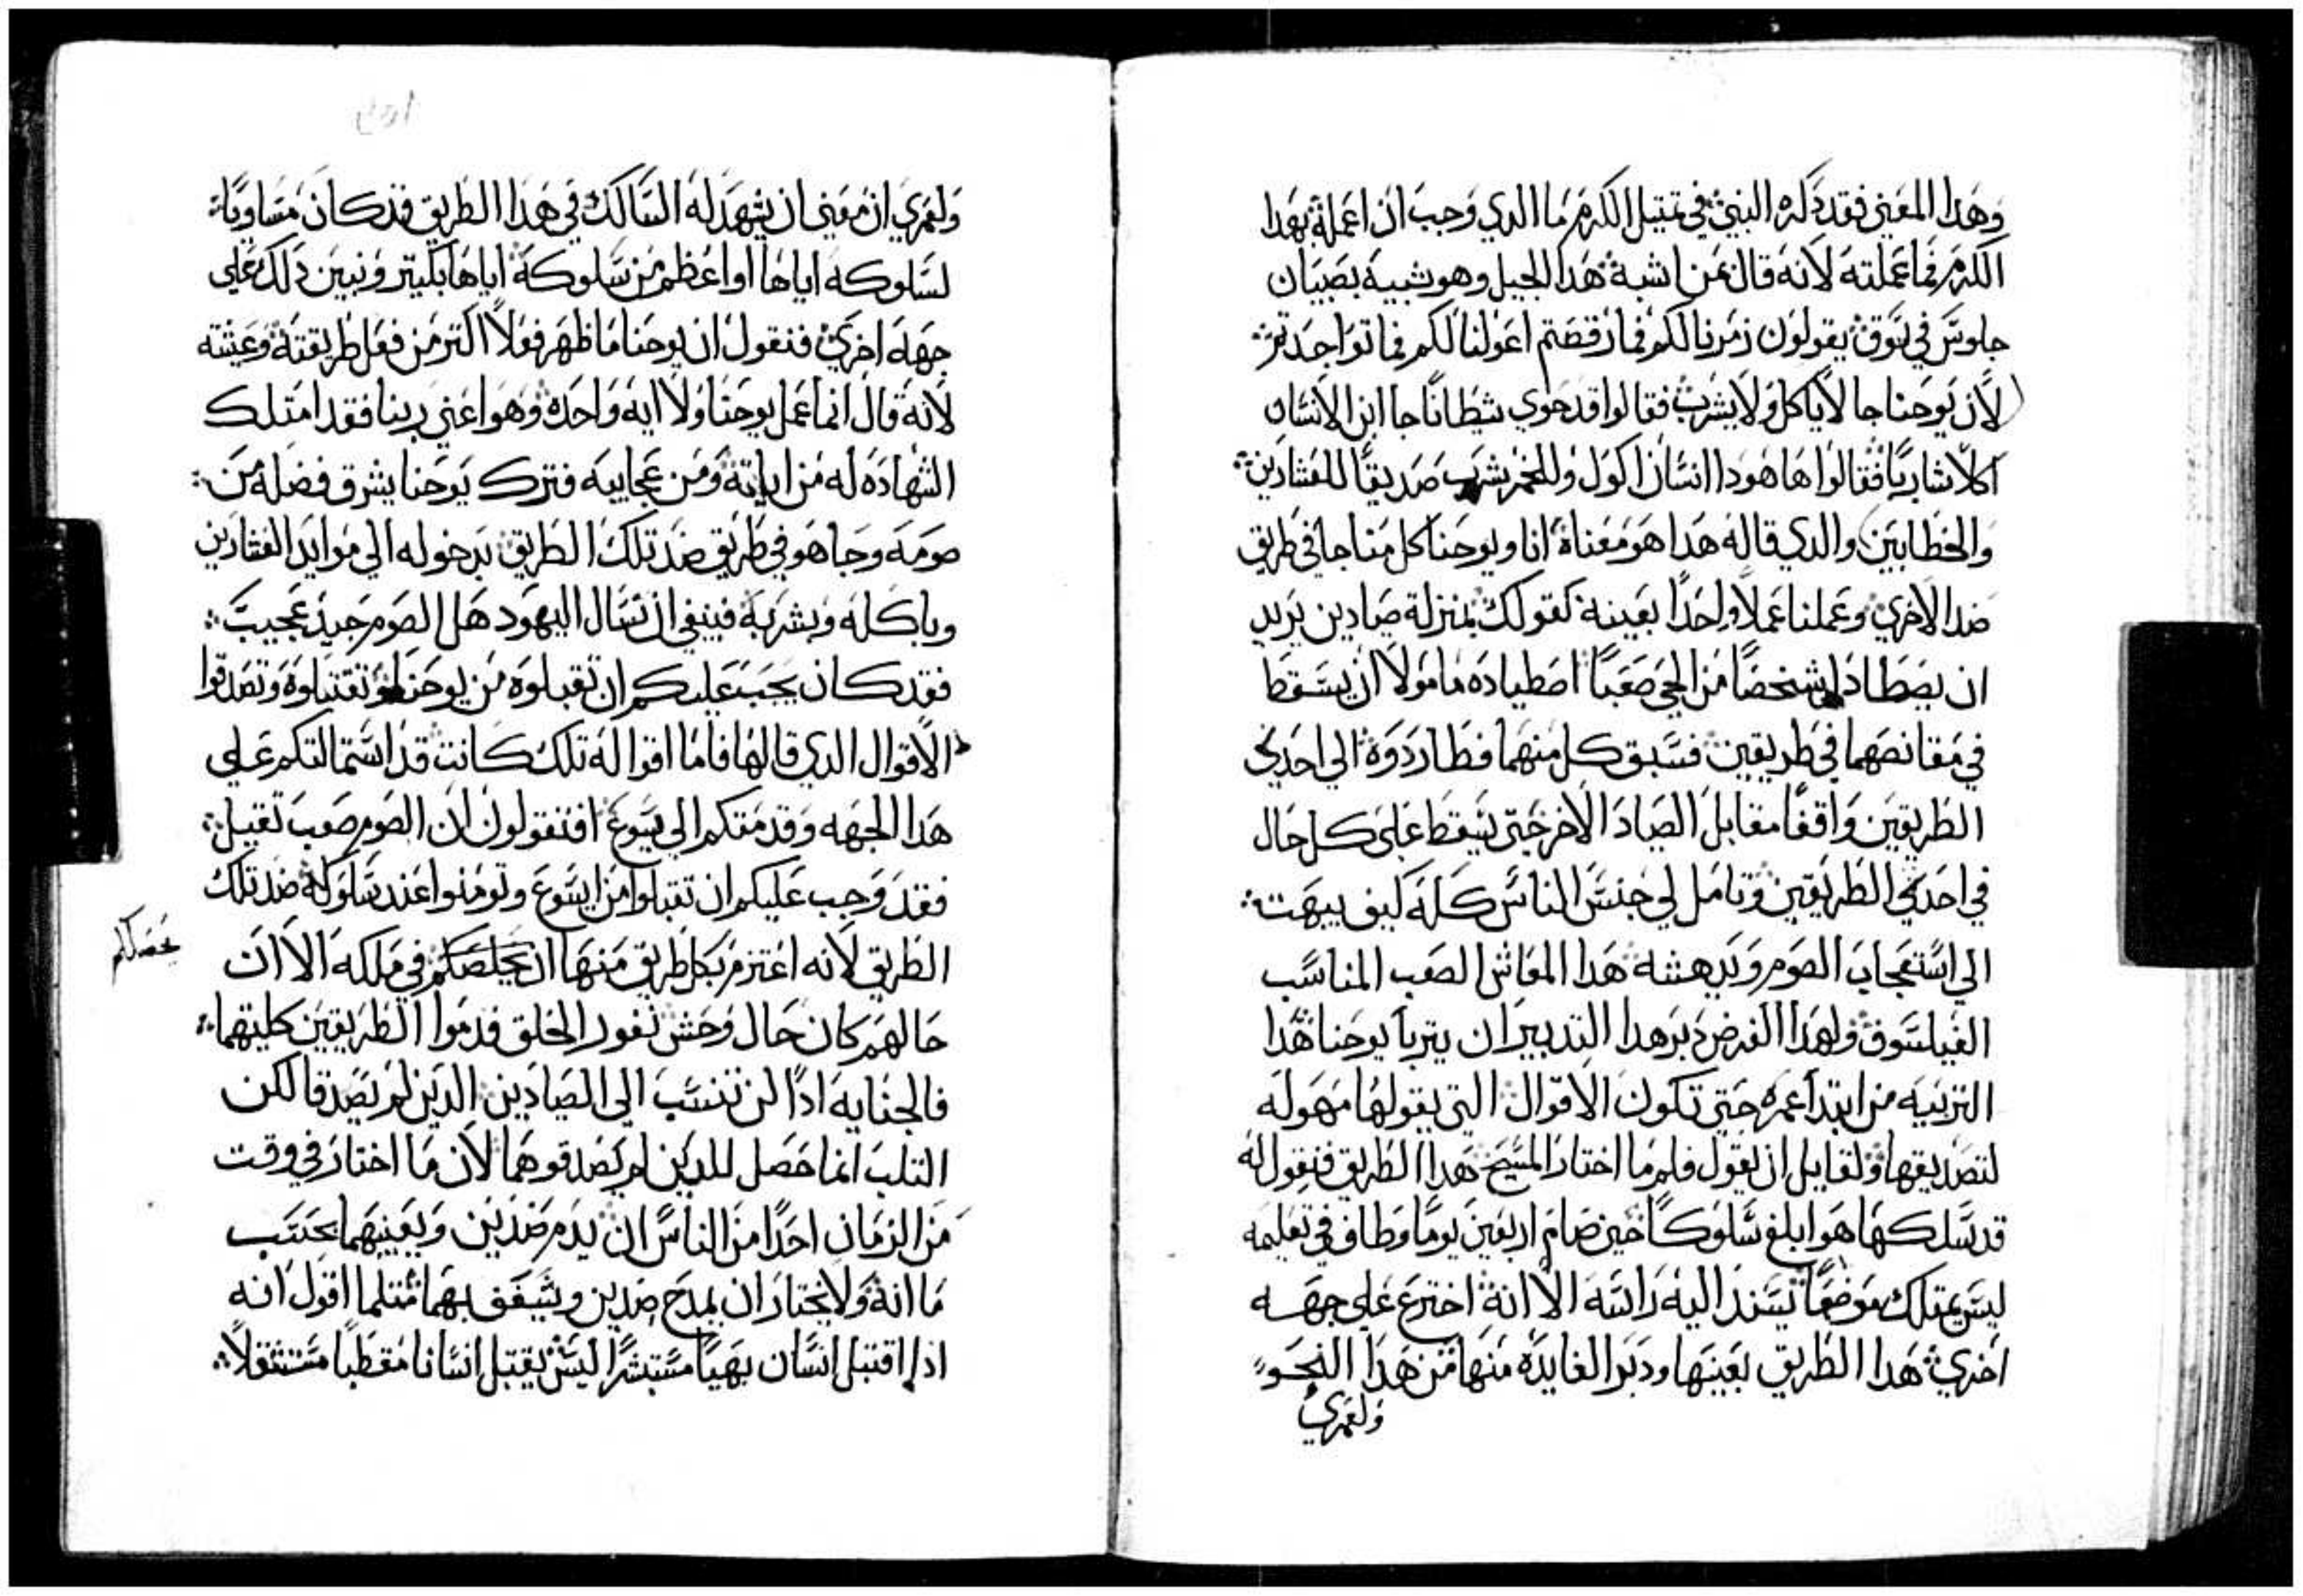 وهدا المعني فقد دكره النبي في تمتيل الكرم ما الدي وجب ان اعمله بهدا
الكرم فما عملته لانه قال فمن اشبه هدا الجيل وهو شبيه بصبيان
جلوس في سوق يقولون زمرنا لكم فما رقصتم اعولنا لكم فما تواجدتم
لان يوحنا جا لا ياكل ولا يشرب فقالوا قد حوي شيطانا جا ابن الانسان
اكلا شاربا فقالوا ها هودا انسان اكول وللخمر شريب صديقا للعشارين
والخطايين والدي قاله هدا هو معناه انا ويوحنا كل منا جا في طريق
ضد الاخري وعملنا عملا واحدا بعينه كقولك بمنزلة صيادين يريد
ان يصطادا شخصا من الحي صعبا اصطياده مامولا ان يسقط
في مقانصهما في طريقين فسبق كل منهما فطارده الي احدي
الطريقين واقفا مقابل الصياد الاخر حتي يسقط علي كل حال
في احدي الطريقين وتامل لي جنس الناس كله كيف يبهت
الي استعجاب الصوم ويدهشه هدا المعاش الصعب المناسب
الفيلسوف ولهدا الغرض دبر هدا التدبير ان يتربا يوحنا هدا
التربيه من ابتدا عمره حتي تكون الاقوال التي يقولها مهوله
لتصديقها ولقايل ان يقول فلم ما اختار المسيح هدا الطريق فنقول له
قد سلكها هو ابلغ سلوكا حين صام اربعين يوما وطاف في تعليمه
ليس يمتلك موضعا يسند اليه راسه الا انه اخترع علي جهه
اخري هدا الطريق بعينها ودبر الفايده منها من هدا النحو
ولعمري
ولعمري ان معني ان يشهد له السالك في هدا الطريق قد كان مساويا
لسلوكه اياها او اعظم من سلوكه اياها بكتير ونبين دلك علي
جهه اخري فنقول ان يوحنا ما ظهر فعلا اكتر من فعل طريقته وعيشته
لانه قال انما عمل يوحنا ولا ايه واحده وهو اعني ربنا فقد امتلك
الشهاده له من اياته ومن عجايبه فترك يوحنا يشرق فضله من
صومه وجا هو في طريق ضد تلك الطريق بدخوله الي موايد العشارين
وباكله وبشربه فينبغي ان نسال اليهود هل الصوم جيد عجيب
فقد كان يجب عليكم ان تقبلوه من يوحنا وتقتبلوه وتصدقوا
الاقوال الدي قالها فاما اقواله تلك كانت قد استمالتكم علي
هدا الجهه وقدمتكم الي يسوع افتقولون ان الصوم صعب تقيل
فقد وجب عليكم ان تقبلوا من ايسوع وتومنوا عند سلوكه ضد تلك
الطريق لانه اعتزم بكل طريق منها ان يخلصكم في ملكه الا ان
يحصلكم
حالهم كان حال وحش نفور الخلق فدموا الطريقين كليتهما
فالجنايه ادا لن تنسب الي الصيادين الدين لم يصدقا لكن
التلب انما حصل للدين لم يصدقوهما لان ما اختار في وقت
من الزمان احدا من الناس ان يدم ضدين ويعيبهما بحسب
ما انه ولا يختار ان يمدح ضدين ويشغف بهما متلما اقول انه
ادا اقتبل انسان بهيا مستبشرا ليس يقتبل انسانا مقطبا مستثقلا